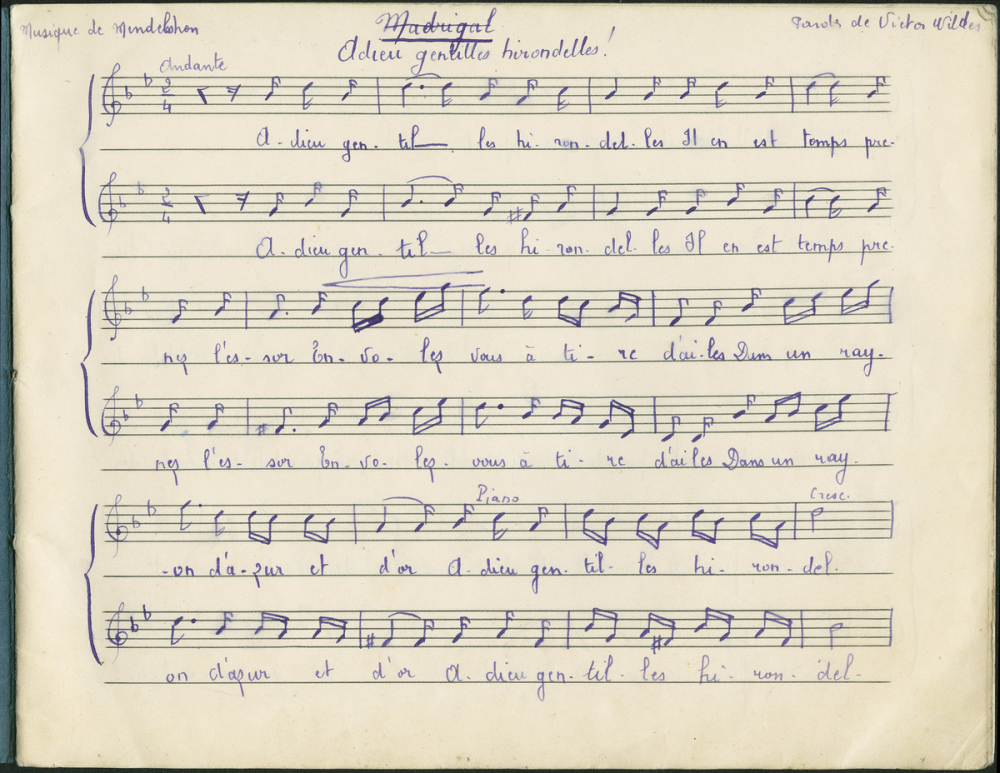 Musique de Mendelshon
Madrigal
Parole de Victor Wildes
Adieu gentilles hirondelles!
Andante
2 4
A. dieu gen. til— les hi. ron. del. les Il en est temps pre.
2 4
A. dieu gen. til— les hi. ron. del. les Il en est temps pre.
nez l'es- sor En- vo- lez vous à ti- re d'ai-les Dans un ray-
nez l'es- sor En- vo- lez- vous à ti- re d'ailes Dans un ray-
Piano
Cresc.
-on d'a-zur et d'or A. dieu gen. til. les hi- ron- del-
on d'azur et d'or A. dieu gen- til- les hi- ron- del-